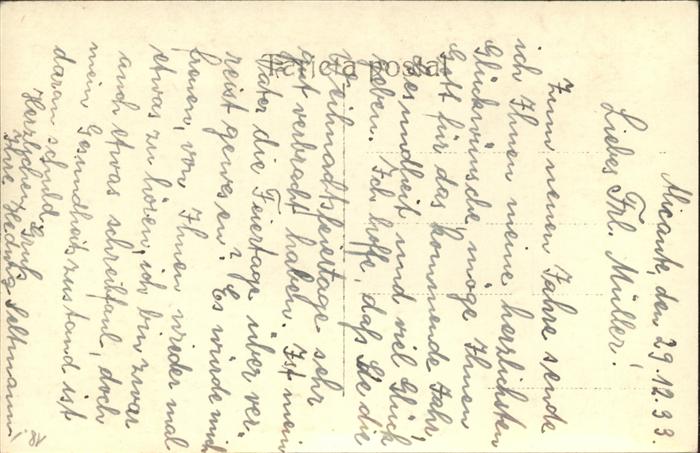 Tarjeta postal
Alicante, den 29.12.33.
Liebes Frl. Müller!
Zum neuen Jahre sende
ich Ihnen meine herzlichsten
Glückwünsche, möge Ihnen
Gott für das kommende Jahr,
Gesundheit und viel Glück
geben. Ich hoffe, daß Sie die
Weihnachtsfeiertage sehr
gut verbracht haben. Ist mein
Vater die Feiertage über ver-
reist gewesen? Es würde mich
freuen, von Ihnen wieder mal
etwas zu hören, ich bin zwar
auch etwas schreibfaul, doch
mein Gesundheitszustand ist
daran schuld.
Herzliche Grüße
Ihre Hedwig Seltmann!